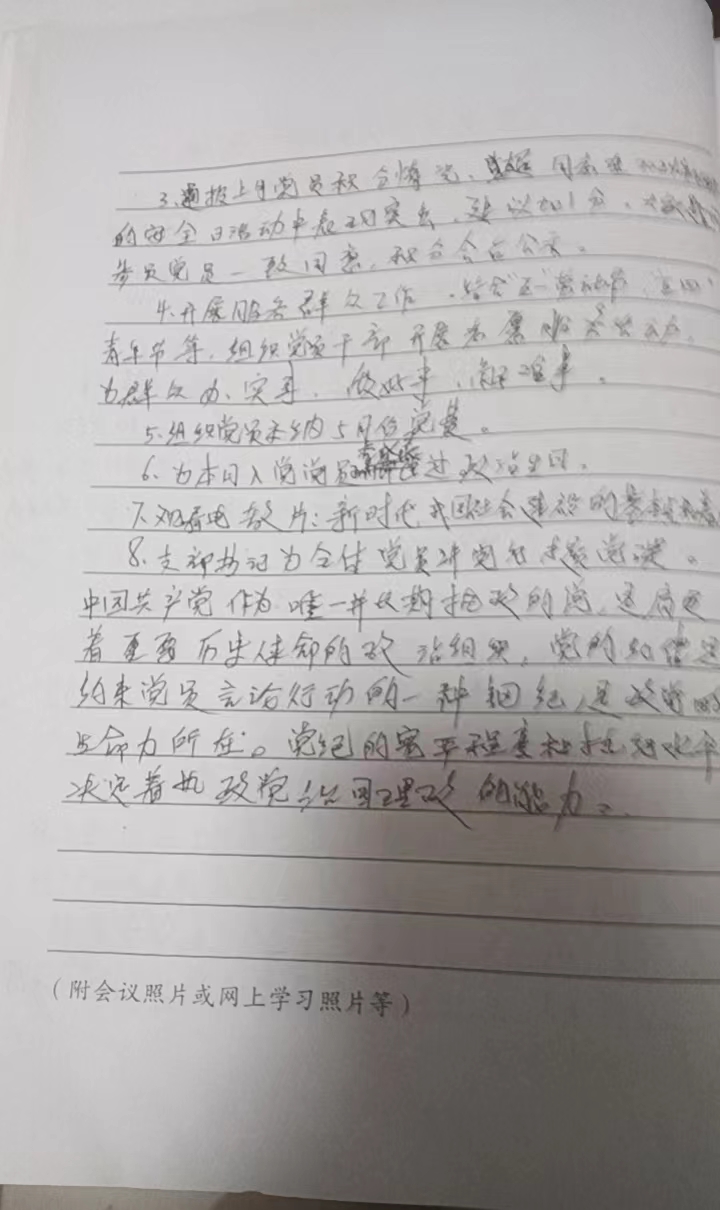 3.通报上月党员积分情况,
的安全日活动中表现突出,建议加1分,
参会党员一致同意,积分会后公示。
4.开展服务群众工作,结合"五一"劳动节、五四
青年节等,组织党员干部开展志愿服务活动,
为群众办实事、做好事、解难事。
5.组织党员交纳5月份党费。
6.为本月入党党员过政治生日。
7.观看电教片:新时代我国社会建设的
8.支部书记为全体党员讲党纪专题党课。
中国共产党作为唯一并长期执政的党,是肩
着重要历史使命的政治组织,党的纪律是
约束党员言论行动的一种铜纪,是政党的
生命力所在。党纪的宽严程度和执纪水平
决定着执政党治国理政的能力。
(附会议照片或网上学习照片等)